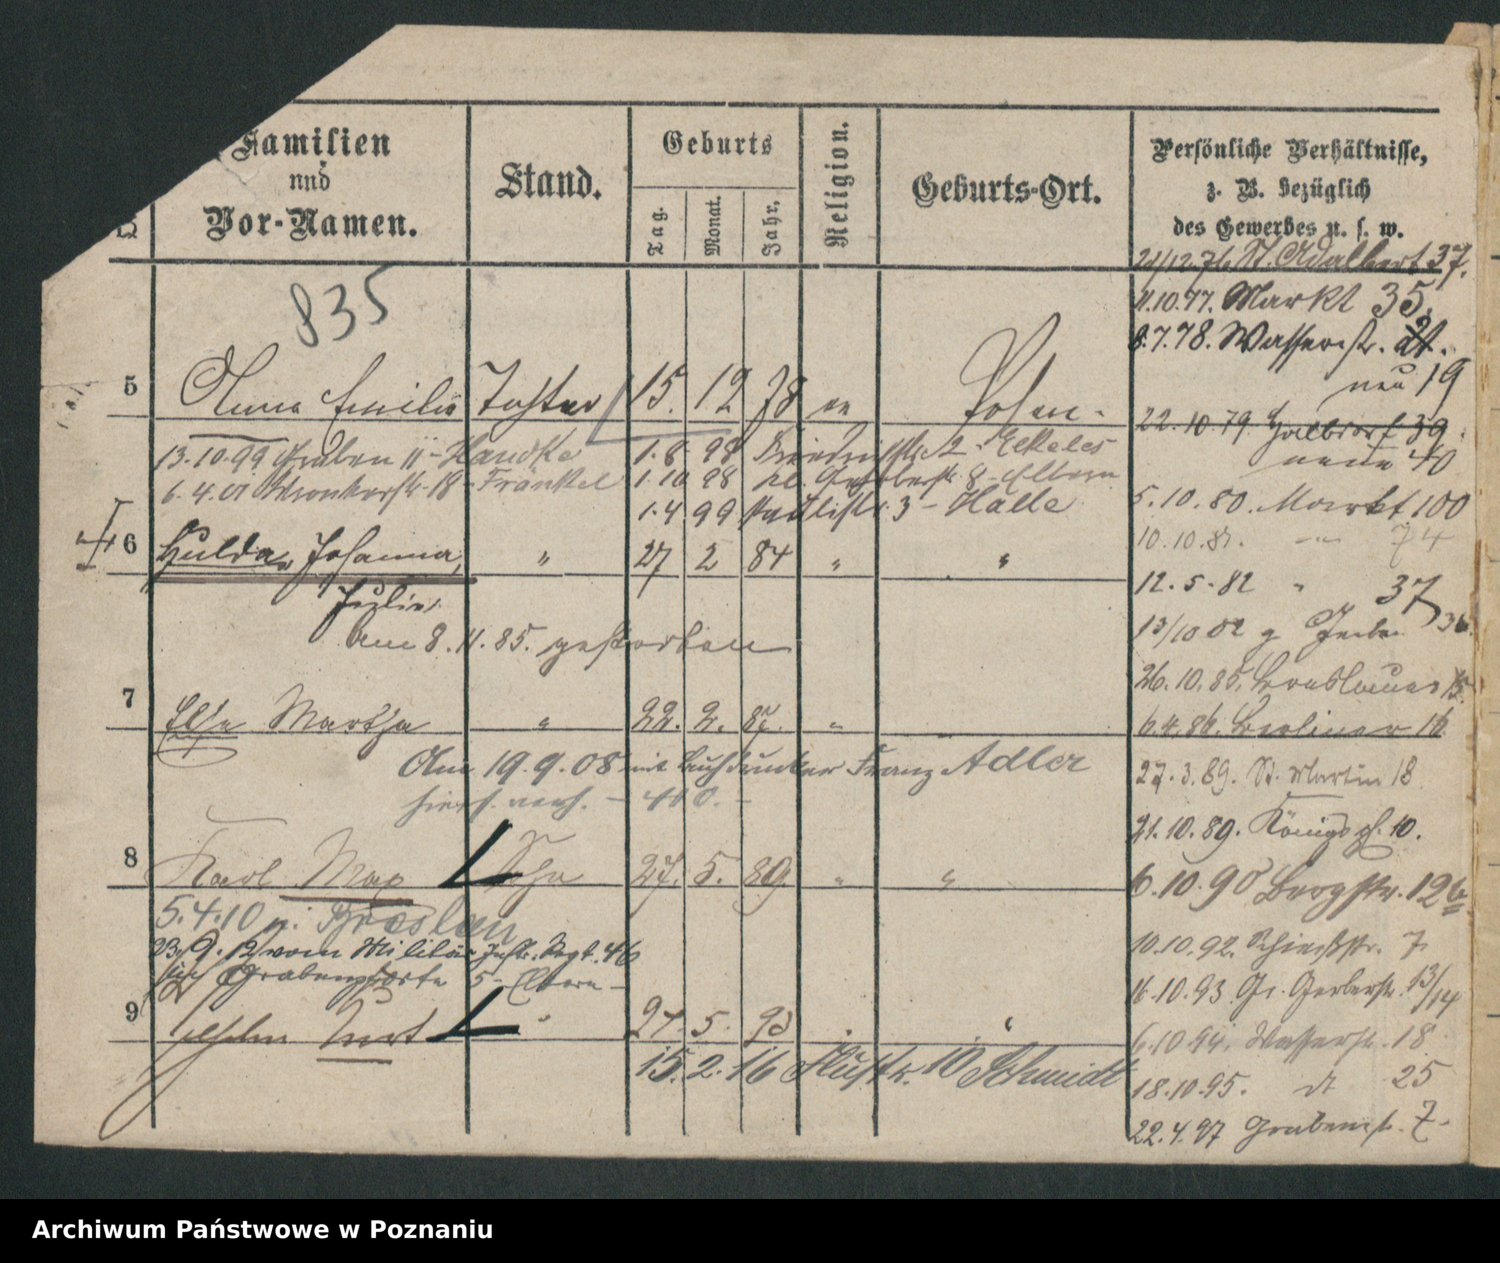 Familien
und
Vor-Namen.
Stand.
Geburts
Tag.
Monat.
Jahr.
Religion.
Geburts-Ort.
Persönliche Verhältnisse,
z. B. bezüglich
des Gewerbes u. s. w.
835
21/12.76. St. Adalbert 37.
11.10.77. Markt 35.
8.7.78. Wasserstr.
neu 19
5 Anna Emilie Tochter 15. 12 78 Posen.
22.10.79. Halbdorf 39.
neue 40
13.10.99 Graben 11 - Handke 1.8.98 2 - Elkeles
6.4.01 18 - Fränkel 1.10 98 kl. Gerberstr. 8 - Eltern
1.4.99 3 - Halle
5.10.80. Markt 100
10.10.81. - " - 74
6 Hulda, Johanna, " 27 2 84 " "
Julie.
12.5.82 " 37
13/10 82 g
am 8.11.85. gestorben
26.10.85. Breslauer 15
7 Else Martha " 22. 2. 87. "
6.4.86. Berliner 16
Am 19.9.08 mit Buchdrucker Franz Adler
hier verh.
27.3.89. St. Martin 18
21.10.89. Königspl. 10.
8 Karl Max Sohn 27. 5. 89. " "
6.10.90 Bergstr. 12b
5.4.10 n. Breslau
23.9.12 vom Militär Inftr. Regt. 46
Grabenpforte 5 - Eltern -
10.10.92. Schießstr. 7.
16.10.93 Gr. Gerberstr. 13/14
9 Wilhelm Kurt " 27. 5. 93 "
6.10.94. Wasserstr. 18
15.2.16 10 Schmidt
18.10.95. dt 25
22.4.97 Grabenstr. 7.
Archiwum Państwowe w Poznaniu